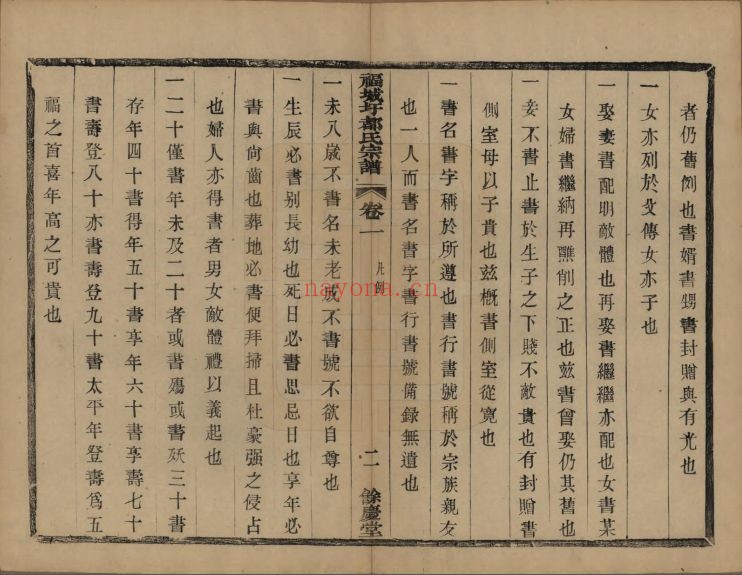 者仍舊例也書婿書甥書封贈與有光也
一女亦列於父傳女亦子也
一娶妻書配明敵體也再娶書繼繼亦配也女書某
女婦書繼納再醮削之正也玆書曾娶仍其舊也
一妾不書止書於生子之下賤不敵貴也有封贈書
側室母以子貴也玆概書側室從寬也
一書名書字稱於所遵也書行書號稱於宗族親友
也一人而書名書字書行書號備録無遺也
福城圩都氏宗譜
卷一
凡例
二
餘慶堂
一未八歲不書名未老成不書號不欲自尊也
一生辰必書别長幼也死日必書思忌日也享年必
書與尚齒也葬地必書便拜掃且杜豪强之侵占
也婦人亦得書者男女敵體禮以義起也
一二十僅書年未及二十者或書殤或書殀三十書
存年四十書得年五十書享年六十書享壽七十
書壽登八十亦書壽登九十書太平年登壽爲五
福之首喜年高之可貴也
nayona.cn